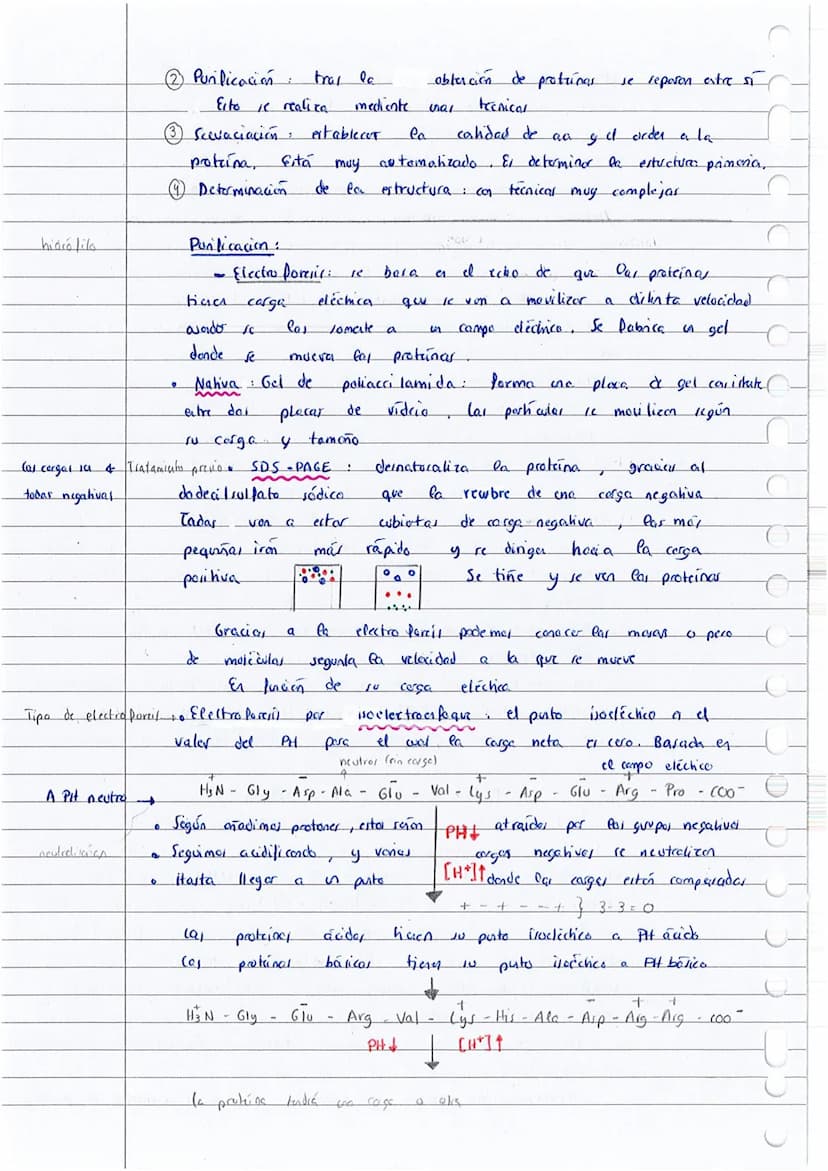 ② Purificación : tras la obtención de proteínas se separan entre sí
Esto se realiza mediante unas técnicas
③ Secuaciación : establecer la calidad de aa y el orden e la
proteína. Está muy automatizado. Es determinar la estructura primaria.
④ Determinación de la estructura : con técnicas muy complejas
hidrófilo
Purificacion :
- Electroforesis: se basa en el echo de que las proteínas
tienen carga eléctrica que se van a movilizar a distinta velocidad
cuando se las somete a un campo eléctrico. Se fabrica un gel
donde se mueven las proteínas.
• Nativa : Gel de poliaccilamida : forma una placa de gel consistente
entre dos placas de vidrio. Las partículas se movilizan según
su carga y tamaño
Las cargas son todas negativas
Tratamiento previo • SDS-PAGE : desnaturaliza la proteína, gracias al
dodecilsulfato sódico que la recubre de una carga negativa
Todas van a estar cubiertas de carga negativa, las más
pequeñas irán más rápido y se dirigen hacia la carga
positiva Se tiñe y se ven las proteínas
Gracias a la electroforesis podemos conocer las masas o peso
de moléculas segunla la velocidad a la que se mueve
En función de su carga eléctrica
Tipo de electroforesis : • Electroforesis por isoelectroenfoque : el punto isoeléctrico es el
valor del PH para el cual la carga neta es cero. Basada en
el campo eléctrico
neutros (sin carga)
A PH neutro → H₃⁺N - Gly - Asp⁻ - Ala - Glu⁻ - Val - Lys⁺ - Asp⁻ - Glu⁻ - Arg⁺ - Pro - COO⁻
• Según añadimos protones, estos serán atraídos por los grupos negativos
PH↓
neutralizan
• Seguimos acidificando, y varias cargas negativas se neutralizan
[H⁺]↑
• Hasta llegar a un punto donde las cargas estén compensadas
+ - + - - + } 3-3=0
Las proteínas ácidas tienen su punto isoeléctrico a PH ácido
Las proteínas básicas tienen su punto isoeléctrico a PH básico
H₃⁺N - Gly - Glu⁻ - Arg - Val - Lys⁺ - His - Ala - Asp⁻ - Arg⁺ - Arg⁺ - COO⁻
PH↓ [H⁺]↑
la proteína tendrá una carga